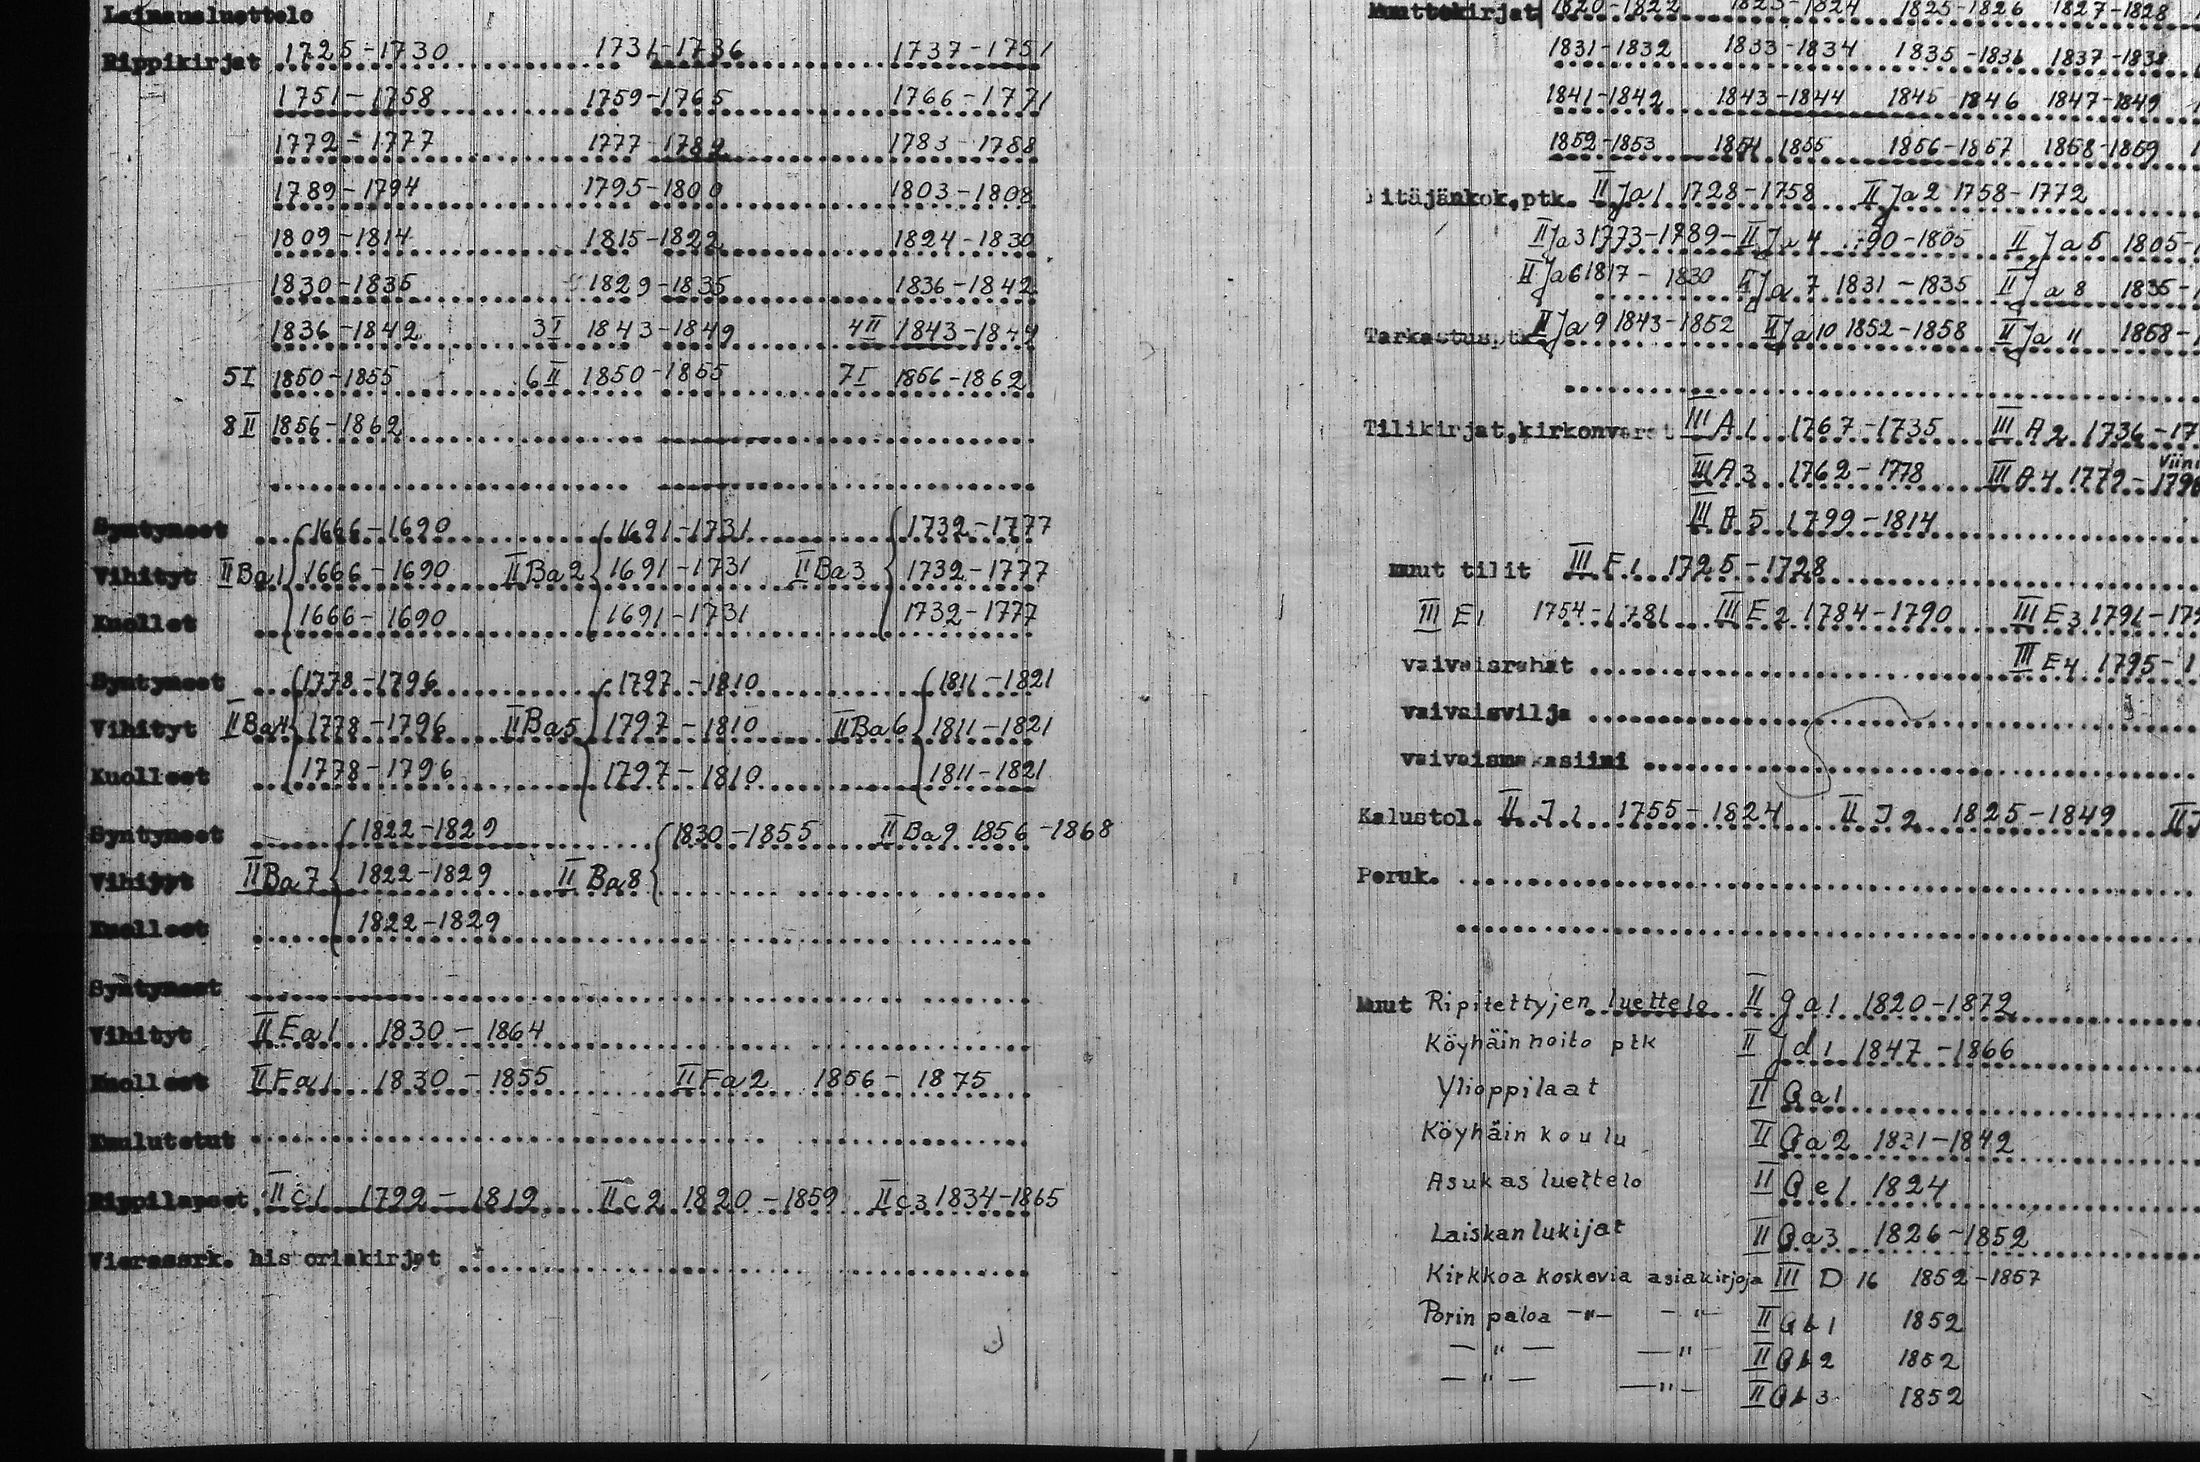 Lainausluettelo
Rippikirjat 1725-1730 1731-1736 1737-1751
1751-1758 1759-1765 1766-1771
1772-1777 1777-1782 1783-1788
1789-1794 1795-1800 1803-1808
1809-1814 1815-1822 1824-1830
1830-1835 1829-1835 1836-1842
1836-1842 3I 1843-1849 4II 1843-1849
5I 1850-1855 6II 1850-1855 7I 1856-1862
8II 1856-1862
Syntyneet 1666-1690 1691-1731 1732-1777
Vihityt II Ba1 1666-1690 II Ba2 1691-1731 II Ba3 1732-1777
Kuollet 1666-1690 1691-1731 1732-1777
Syntyneet 1778-1796 1797-1810 1811-1821
Vihityt II Ba4 1778-1796 II Ba5 1797-1810 II Ba6 1811-1821
Kuolleet 1778-1796 1797-1810 1811-1821
Syntyneet 1822-1829 1830-1855 II Ba9 1856-1868
Vihityt II Ba7 1822-1829 II Ba8
Kuolleet 1822-1829
Syntyneet
Vihityt II Ea1 1830-1864
Kuolleet II Fa1 1830-1855 II Fa2 1856-1875
Kuulutetut
Rippilapset II C1 1792-1819 II C2 1820-1859 II C3 1834-1865
Vierasark. historiakirjat
Muuttokirjat 1820-1822 1823-1824 1825-1826 1827-1828
1831-1832 1833-1834 1835-1836 1837-1838
1841-1842 1843-1844 1845 1846 1847-1849
1852-1853 1854 1855 1856-1857 1858-1859
itäjänkok.ptk. II Ja1 1728-1758 II Ja2 1758-1772
II Ja3 1773-1789- II Ja4 90-1805 II Ja5 1805-
II Ja6 1817-1830 II Ja7 1831-1835 II Ja8 1835-
Tarkastusptk II Ja9 1843-1852 II Ja10 1852-1858 II Ja11 1858-
Tilikirjat,kirkonvarat III A1 1767-1735 III A2 1736-17
III A3 1762-1778 III A4 1772-1796 Viini
III A5 1799-1814
muut tilit III F1 1725-1728
III E1 1754-1781 III E2 1784-1790 III E3 1791-179
vaivaisrahat III E4 1795-1
vaivaisvilja
vaivaismakasiini
Kalustol. II I1 1755-1824 II I2 1825-1849 II
Peruk.
Muut Ripitettyjen luettelo II ga1 1820-1872
Köyhäinhoito ptk II Jd1 1847-1866
Ylioppilaat II Ga1
Köyhäin koulu II Ga2 1831-1842
Asukas luettelo II Ge1 1824
Laiskanlukijat II Ga3 1826-1852
Kirkkoa koskevia asiakirjoja III D 16 1852-1857
Porin paloa -"- -"- II Gb1 1852
-"- -"- II Gb2 1852
-"- -"- II Gb3 1852